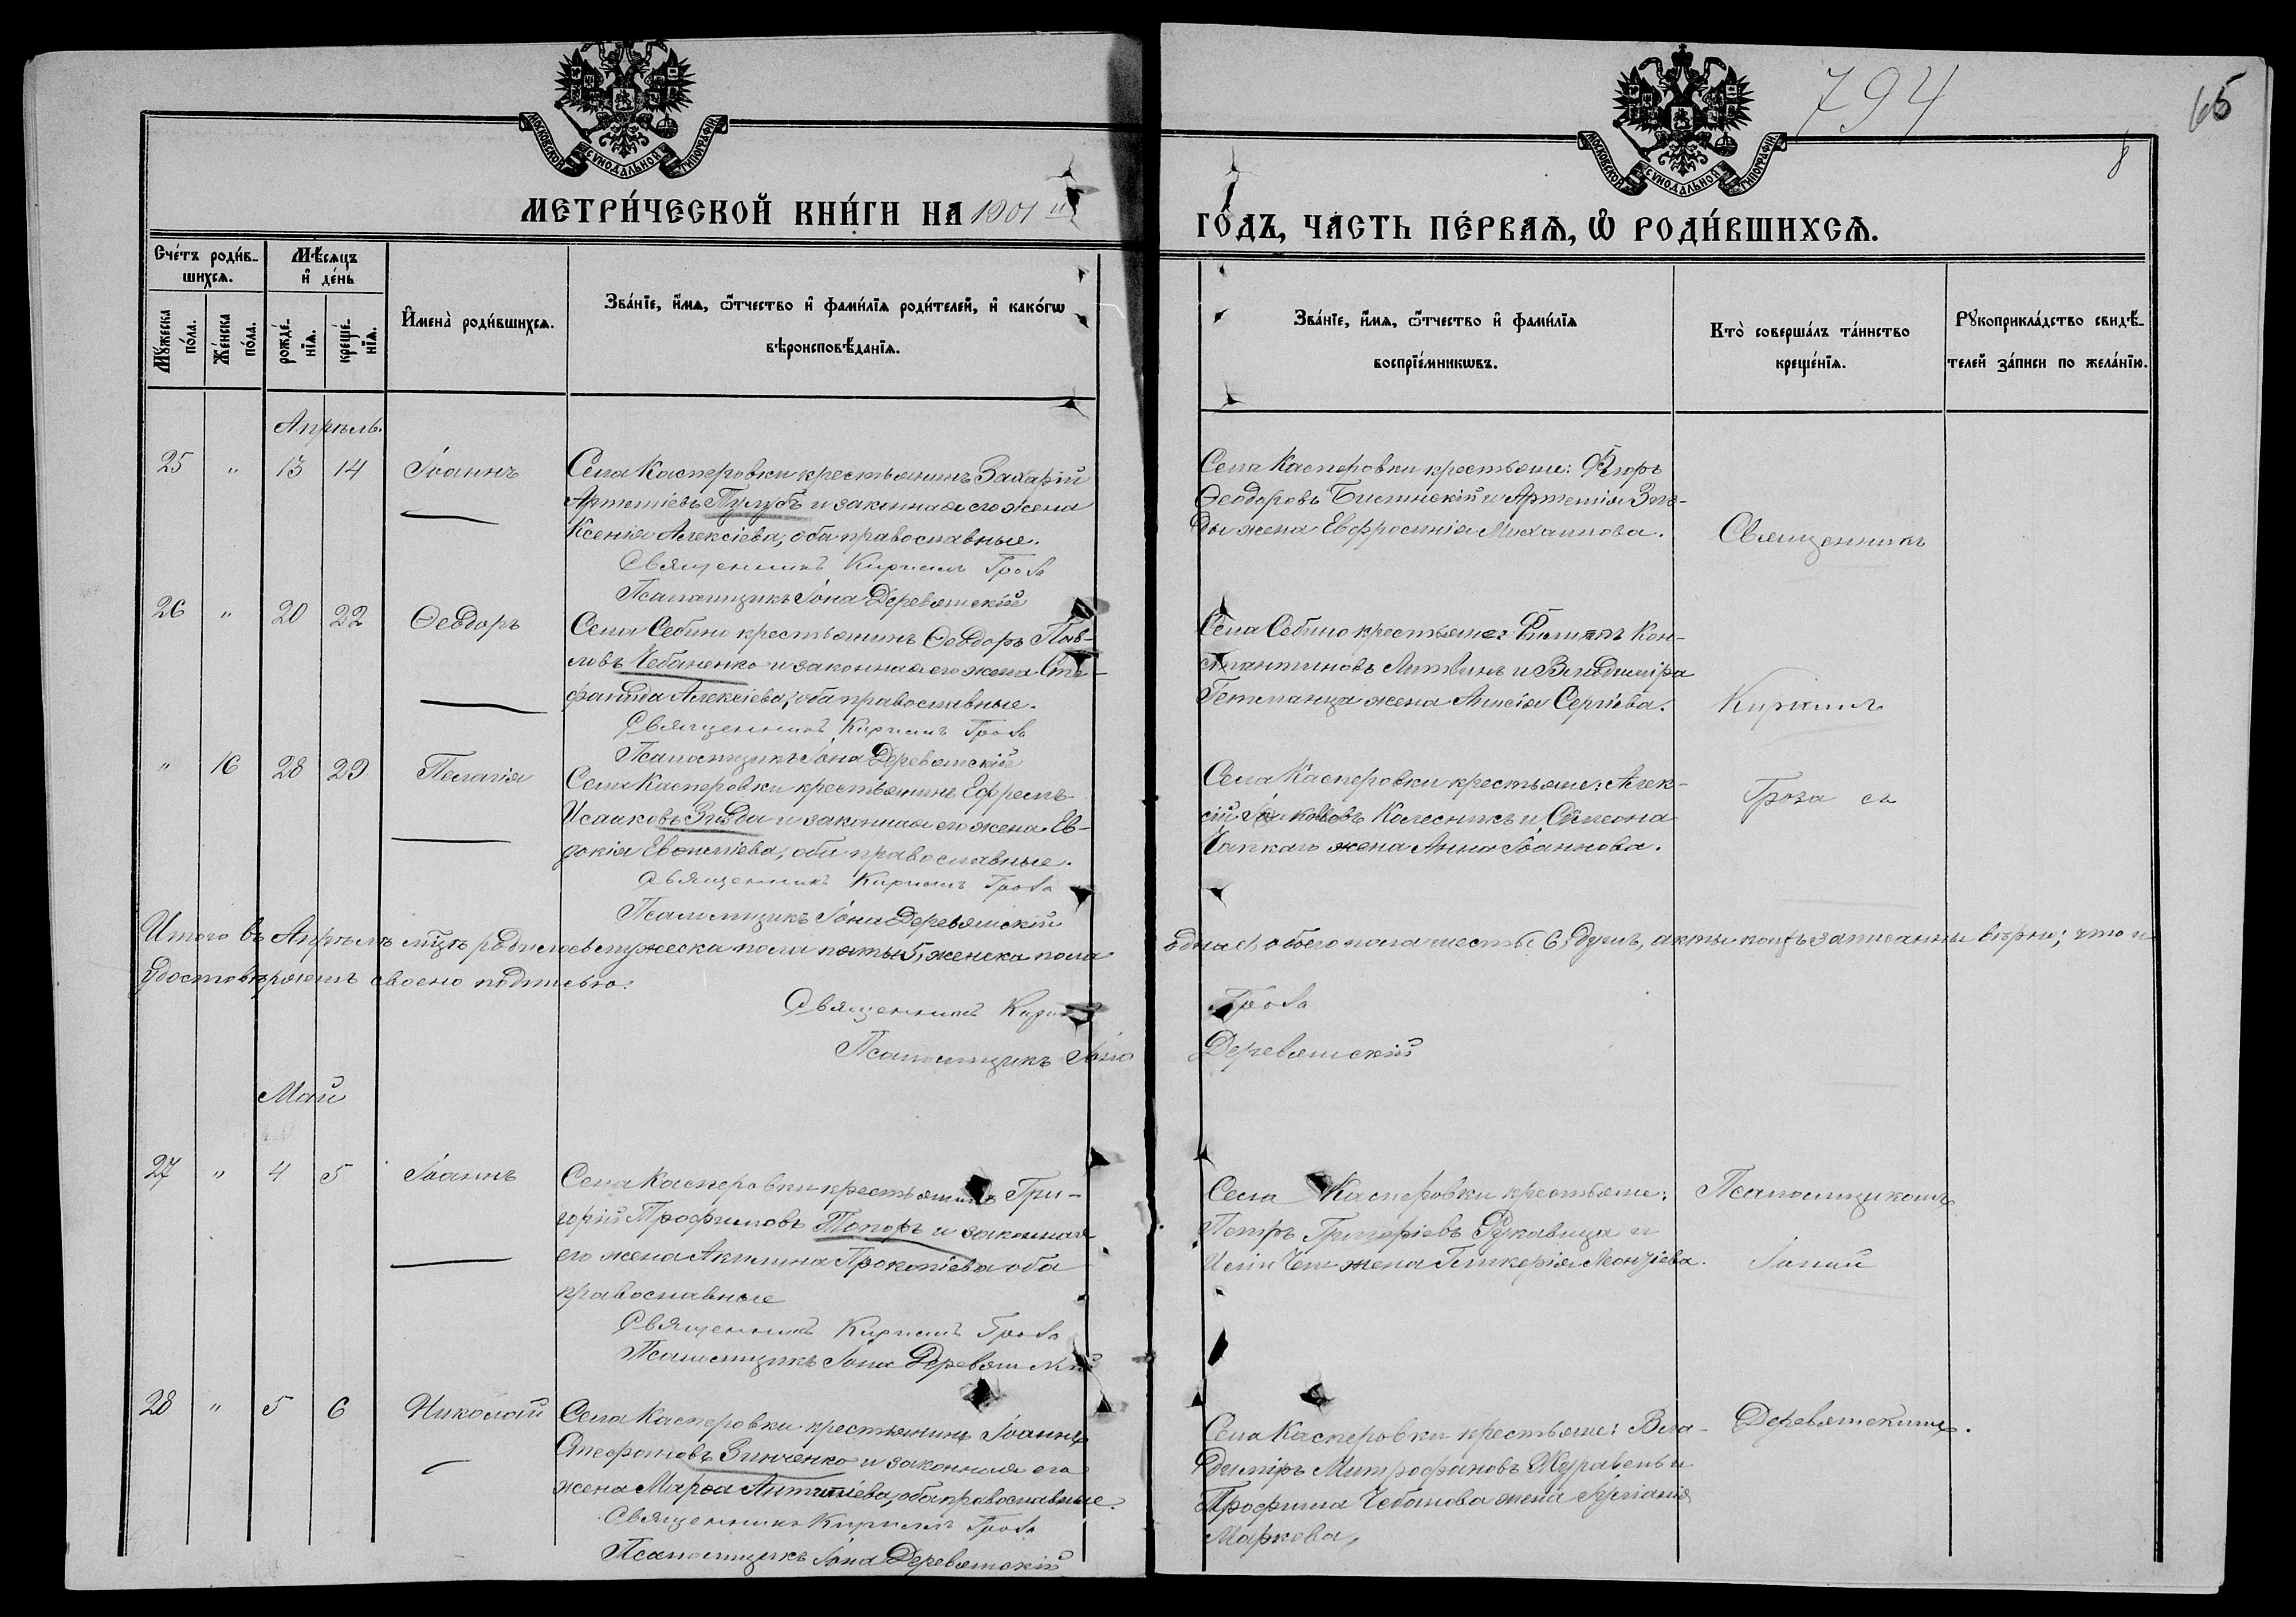 794
65
8
МОСКОВСКОЙ СѴНОДАЛЬНОЙ ТИПОГРАФІИ
МОСКОВСКОЙ СѴНОДАЛЬНОЙ ТИПОГРАФІИ
МЕТРИ́ЧЕСКОЙ КНИ́ГИ НА 1901й
ГО́ДЪ, ЧА́СТЬ ПЕ́РВАѦ, Ѡ҆ РОДИ́ВШИХСѦ.
Сче́тъ роди́в-
шихсѧ.
Мѣ́сѧцъ
и҆ де́нь
Мꙋ́жеска
по́ла.
Же́нска
по́ла.
рожде́-
нїѧ.
креще́-
нїѧ.
И҆мена̀ роди́вшихсѧ.
Зва́нїе, и҆́мѧ, ѻ҆́тчество и҆ фами́лїѧ роди́телей, и҆ како́гѡ
вѣроисповѣ́данїѧ.
Зва́нїе, и҆́мѧ, ѻ҆́тчество и҆ фами́лїѧ
воспрїе́мникѡвъ.
Кто̀ соверша́лъ та́инство
креще́нїѧ.
Рꙋкоприкла́дство свидѣ́-
телей за́писи по жела́нїю.
Апрѣль.
25 " 13 14 Іоаннъ
Села Касперовки крестьянинъ Захарій
Артеміевъ Тулубъ и законная его жена
Ксенія Алексіева, оба православные.
Священникъ Кириллъ Гроза
Псаломщикъ Іона Деревямскій
Села Касперовки крестьяне:
Ѳеодоровъ и Артемія Згы-
ды жена Евфросинія Михаилова.
Священникъ
26 " 20 22 Ѳеодоръ
Села Себино крестьянинъ Ѳеодоръ Пав-
ловъ Чебаненко и законная его жена Сте-
фанида Алексіева, оба православные.
Священникъ Кириллъ Гроза
Псаломщикъ Іона Деревямскій
Села Себино крестьяне: Филиппъ Кон-
стантиновъ Литвинъ и Владиміра
Гетманца жена Анисія Сергіева.
Кириллъ
" 16 28 29 Пелагія
Села Касперовки крестьянинъ Ефремъ
Исааковъ Згыда и законная его жена Ев-
докія Евфиміева, оба православные.
Священникъ Кириллъ Гроза
Псаломщикъ Іона Деревямскій
Села Касперовки крестьяне: Алек-
сій Колесникъ и Симеона
Чапкаго жена Анна Іоаннова.
Гроза съ
Итого въ Апрѣлѣ м͠цѣ родилось мужеска пола пять 5, женска пола
одна 1, обоего пола шесть 6 душъ, акты коихъ записанны вѣрно; что и
удостовѣряемъ своею подписью.
Священникъ Кириллъ Гроза
Псаломщикъ Іона Деревямскій
Май
27 " 4 5 Іоаннъ
Села Касперовки крестьянинъ Гри-
горій Трофимовъ Топоръ и законная
его жена Акилина Прокопіева оба
православные
Священникъ Кириллъ Гроза
Псаломщикъ Іона Деревямскій
Села Касперовки крестьяне:
Петръ Григоріевъ Рукавица и
жена Гликерія Леонтіева.
Псаломщикомъ
Іоной
28 " 5 6 Николай
Села Касперовки крестьянинъ Іоаннъ
Стефановъ Зинченко и законная его
жена Марѳа Антипіева, оба православные.
Священникъ Кириллъ Гроза
Псаломщикъ Іона Деревямскій
Села Касперовки крестьяне: Вла-
димиръ Митрофановъ Журавель и
Трофима Чебанова жена Іуліанія
Маркова,
Деревямскимъ.